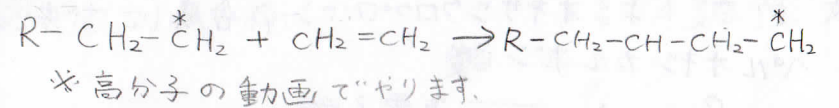 R-CH₂-C*H₂ + CH₂=CH₂ → R-CH₂-CH-CH₂-C*H₂
※高分子の動画でやります。